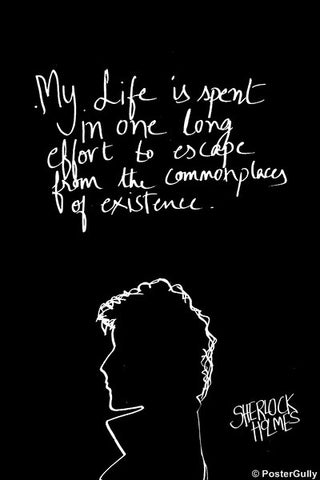 My Life is spent
in one long
effort to escape
from the commonplaces
of existence.
SHERLOCK
HOLMES
© PosterGully